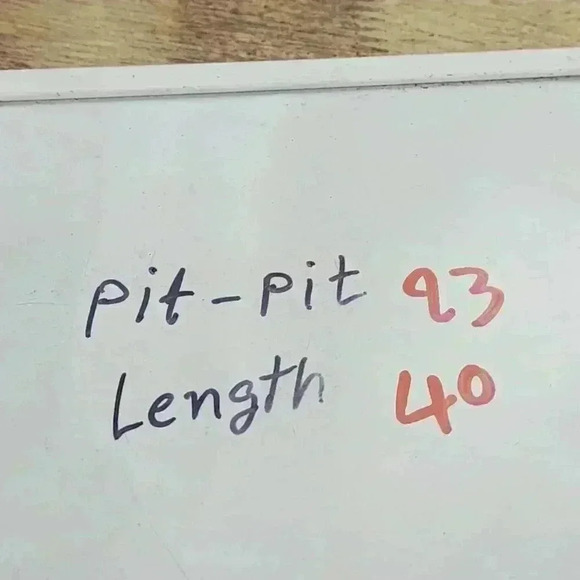 pit-pit 23
Length 40